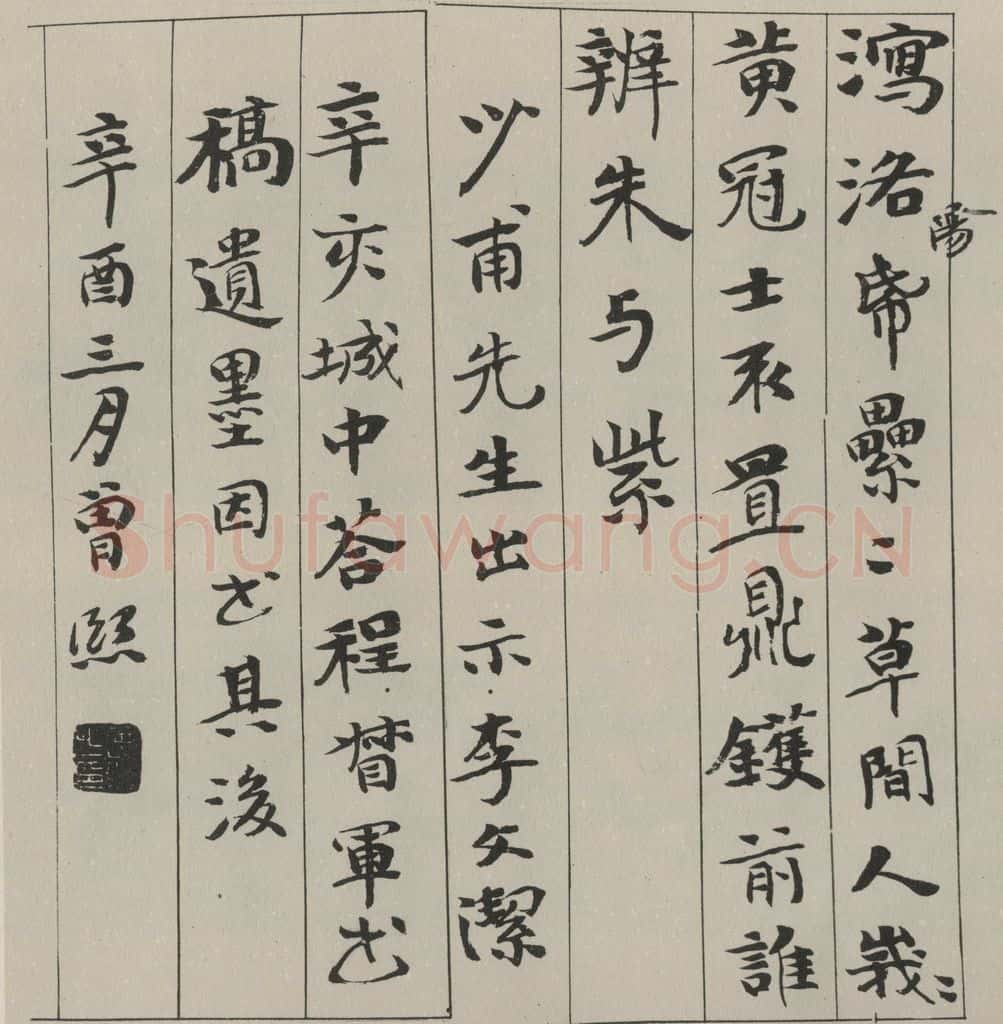 瀉洛陽帋纍〻草間人峩〻
黄冠士不置鼎鑊前誰
辨朱与紫
少甫先生出示李文潔
辛亥城中荅程督軍书
稿遺墨因书其後
辛酉三月曾熙
Shufawang.CN